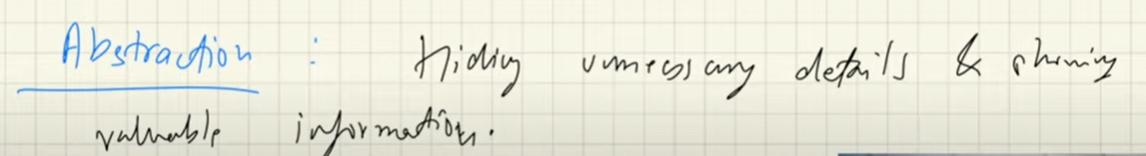 Abstraction : Hiding unnecessary details & showing
valuable information.